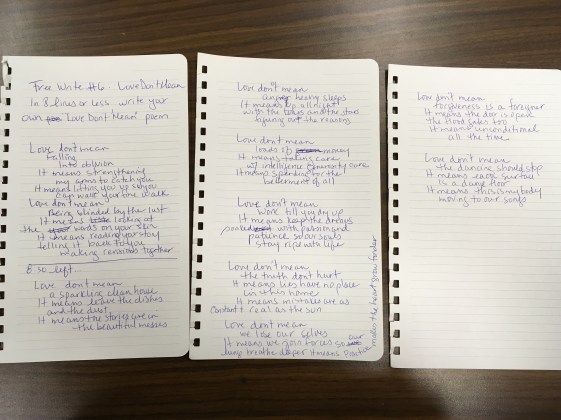 Free Write #6 - Love Don't Mean
In 8 lines or less write your
own "Love Don't Mean" poem
Love don't mean
Falling
Into oblivion
It means strengthening
my arms to catch you
It means lifting you up so you
can walk your line
Love don't mean
Being blinded by the lust
It means looking at
the words on your skin
It means reading your story
telling it back to you
making connections together
8 so left
Love don't mean
a sparkling clean house
It means leave the dishes
and the dust
It means the stories are in
the beautiful messes
Love don't mean
heavy sleeps
It means up all night
with the babies and the stars
figuring out the reasons
Love don't mean
loads of money
It means taking care
w/ intelligence & community care
It means spending for the
betterment of all
Love don't mean
work till you dry up
It means keep the drops
soaked with passion and
patience so our souls
stay ripe with life
Love don't mean
the truth don't hurt
It means lies have no place
in this home
It means mistakes are as
constant & real as the sun
Love don't mean
we lose our selves
It means we join forces so our
lungs breathe deeper it means
makes the heart grow fonder
Love don't mean
forgiveness is a foreigner
It means the door is open
the floor gates too
It means unconditional
all the time
Love don't mean
the dancing should stop
It means each year too
Is a dance floor
It means this is my body
moving to our songs